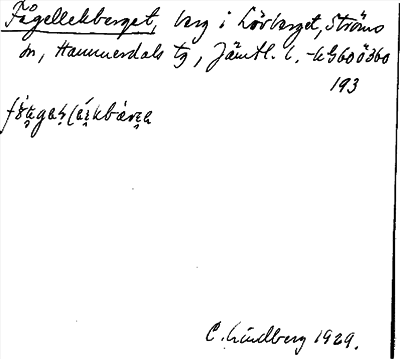 Fågellekberget, berg i Lövberget, Ströms
sn, Hammerdals tg, Jämtl. l. -kG60ö360
193
C. Lindberg 1929.